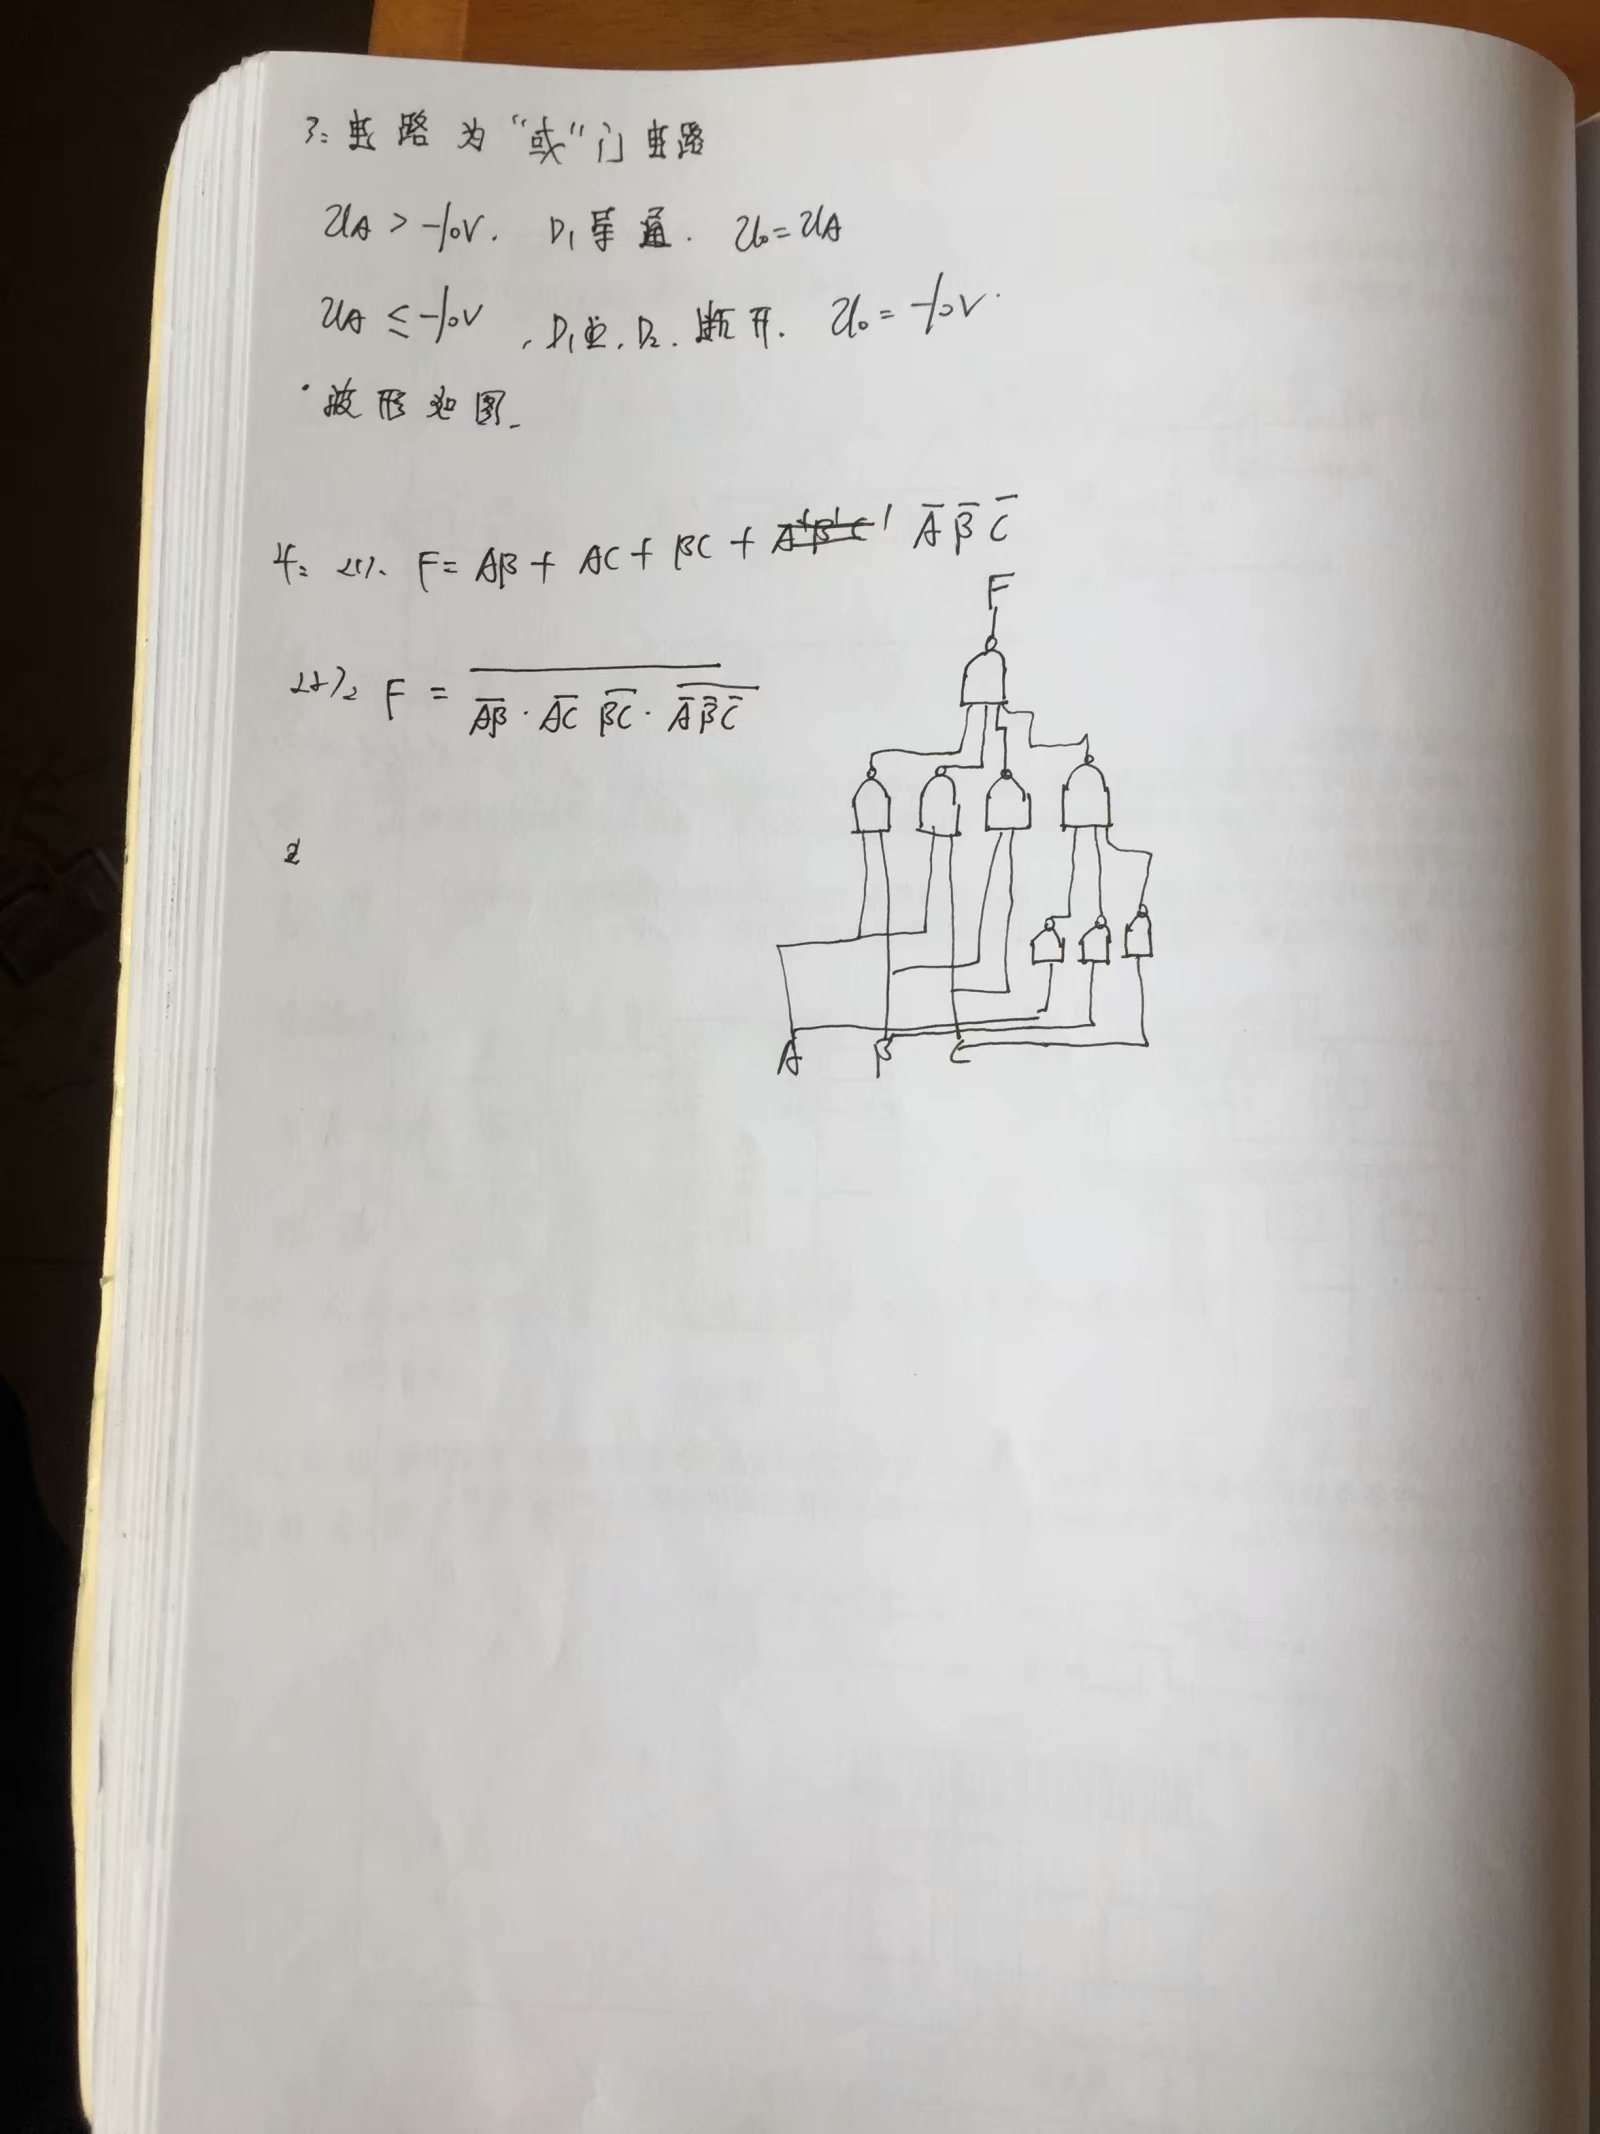 3. 电路为“或”门电路
UA > -10V. D1导通. Uo = UA
UA ≤ -10V, D1, D2. 断开. Uo = -10V.
波形如图.
4. (1). F = AB + AC + BC + A̅ B̅ C̅
F
(2) F = \overline{\overline{AB} · \overline{AC} \overline{BC} · \overline{A̅ B̅ C̅}}
A B C